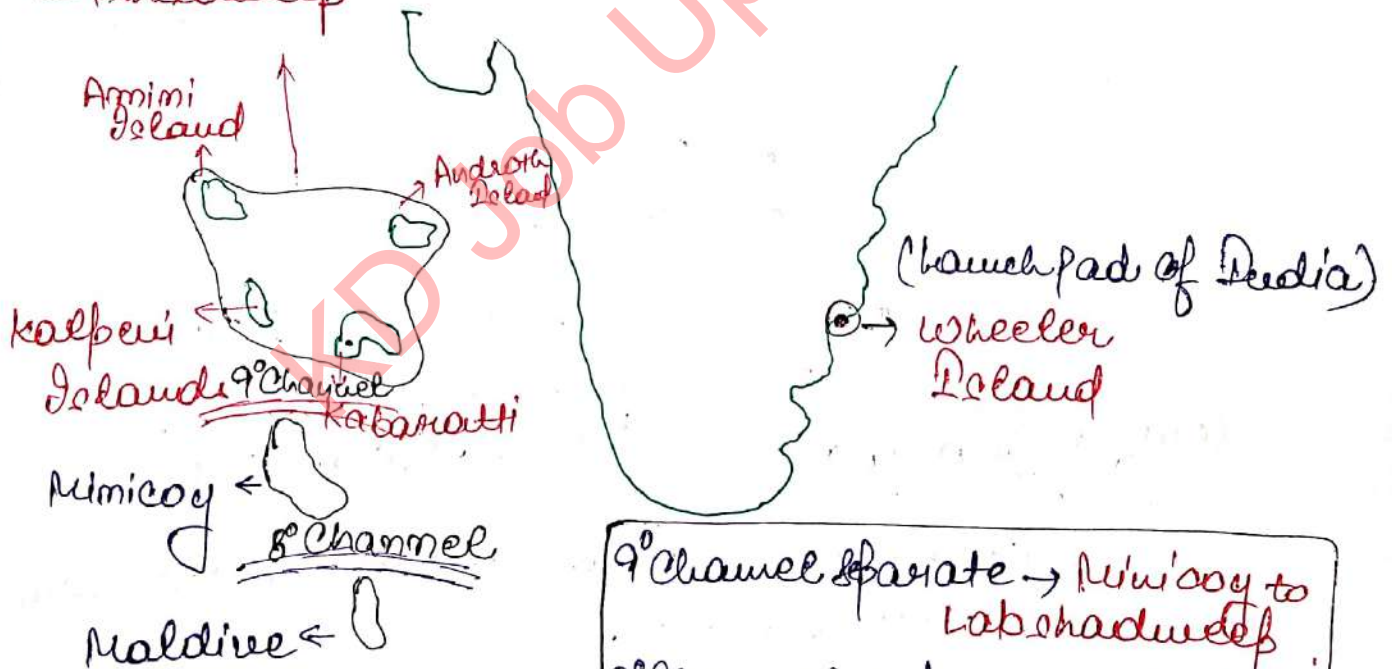 Amini
Island
Androth
Island
Kalpeni
Island
9° Channel
Kabaratti
Minicoy
8° Channel
Maldive
(Launch pad of India)
Wheeler
Island
9° Channel separate → Minicoy to
Labshadweep
KD Job Up